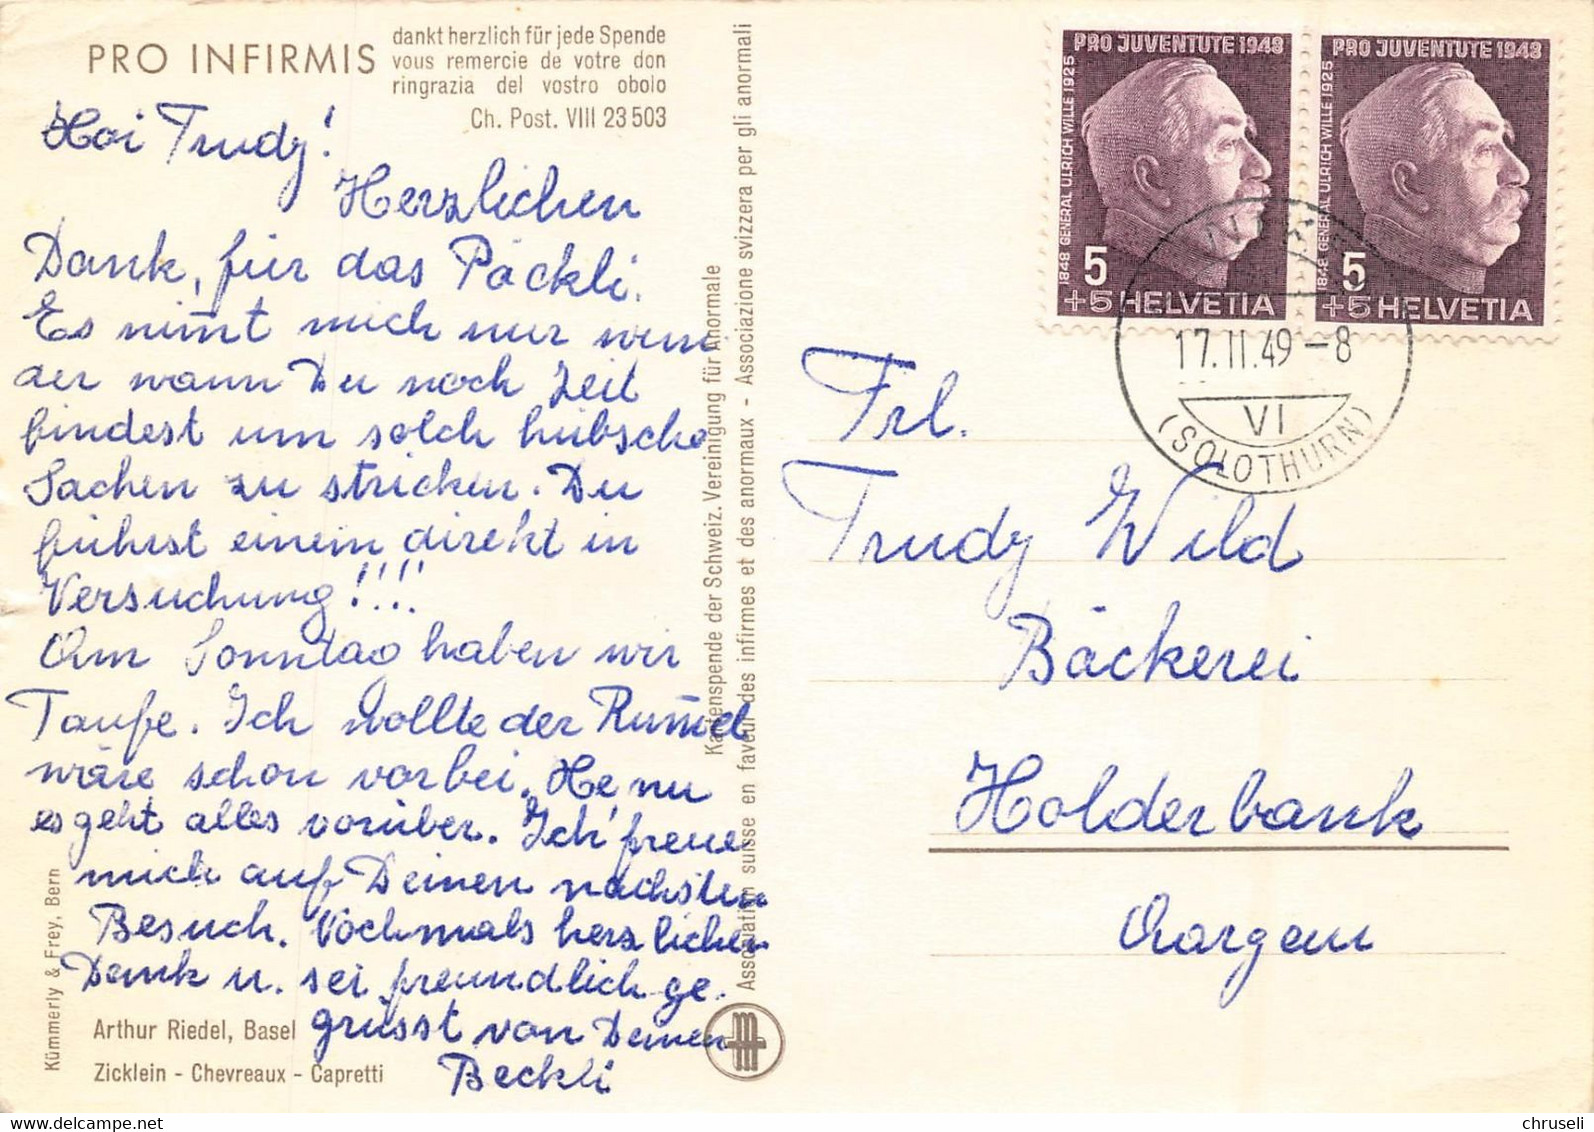 PRO INFIRMIS
dankt herzlich für jede Spende
vous remercie de votre don
ringrazia del vostro obolo
Ch. Post. VIII 23 503
Hoi Trudy!
Herzlichen
Dank, für das Päckli.
Es nim̄t mich nur wun
der wann Du noch Zeit
findest um solch hübsche
Sachen zu stricken. Du
führst einem direkt in
Versuchung!!!!
Am Sonntag haben wir
Taufe. Ich wollte der Rum̄el
wäre schon vorbei. He nu
es geht alles vorüber. Ich freue
mich auf Deinen nächsten
Besuch. Nochmals herzlichen
Dank u. sei freundlich ge-
grüsst von Deinen
Beckli
Kümmerly & Frey, Bern
Arthur Riedel, Basel
Zicklein - Chevreaux - Capretti
Kartenspende der Schweiz. Vereinigung für Anormale
Association suisse en faveur des infirmes et des anormaux - Associazione svizzera per gli anormali
PRO JUVENTUTE 1948
1848 GENERAL ULRICH WILLE 1925
5
+5 HELVETIA
PRO JUVENTUTE 1948
1848 GENERAL ULRICH WILLE 1925
5
+5 HELVETIA
17.II.49-8
VI
(SOLOTHURN)
Frl.
Trudy Wild
Bäckerei
Holderbank
Aargau
delcampe.net
chruseli